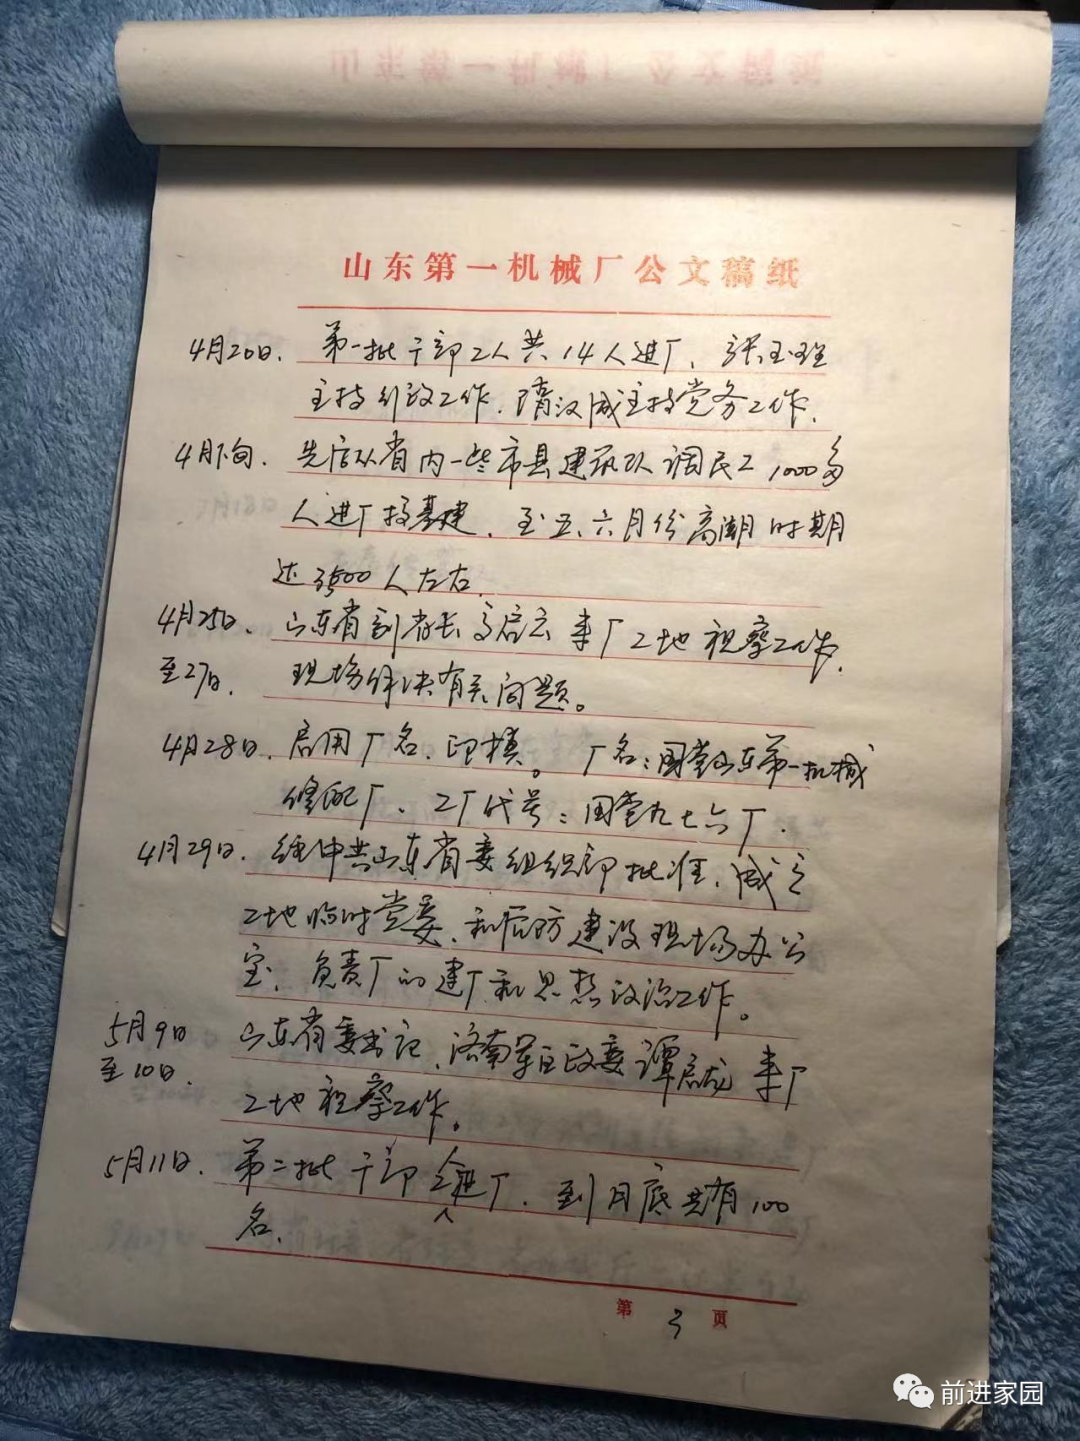 山东第一机械厂公文稿纸
4月20日. 第一批干部工人共14人进厂, 张玉珽
主持行政工作, 隋汉成主持党务工作.
4月下旬. 先后从省内一些市县建筑队调民工1000多
人进厂搞基建, 至五、六月份高潮时期
达3500人左右.
4月25日. 山东省副省长高启云来厂工地视察工作,
至27日. 现场解决有关问题。
4月28日. 启用厂名、印模。厂名:国营山东第一机械
修配厂, 工厂代号:国营九七六厂.
4月29日. 经中共山东省委组织部批准, 成立
工地临时党委, 和国防建设现场办公
室, 负责厂的建厂和思想政治工作。
5月9日 山东省委书记、济南军区政委谭启龙来厂
至10日. 工地视察工作。
5月11日. 第二批干部工人进厂, 到月底共有100
名.
第 3 页
前进家园